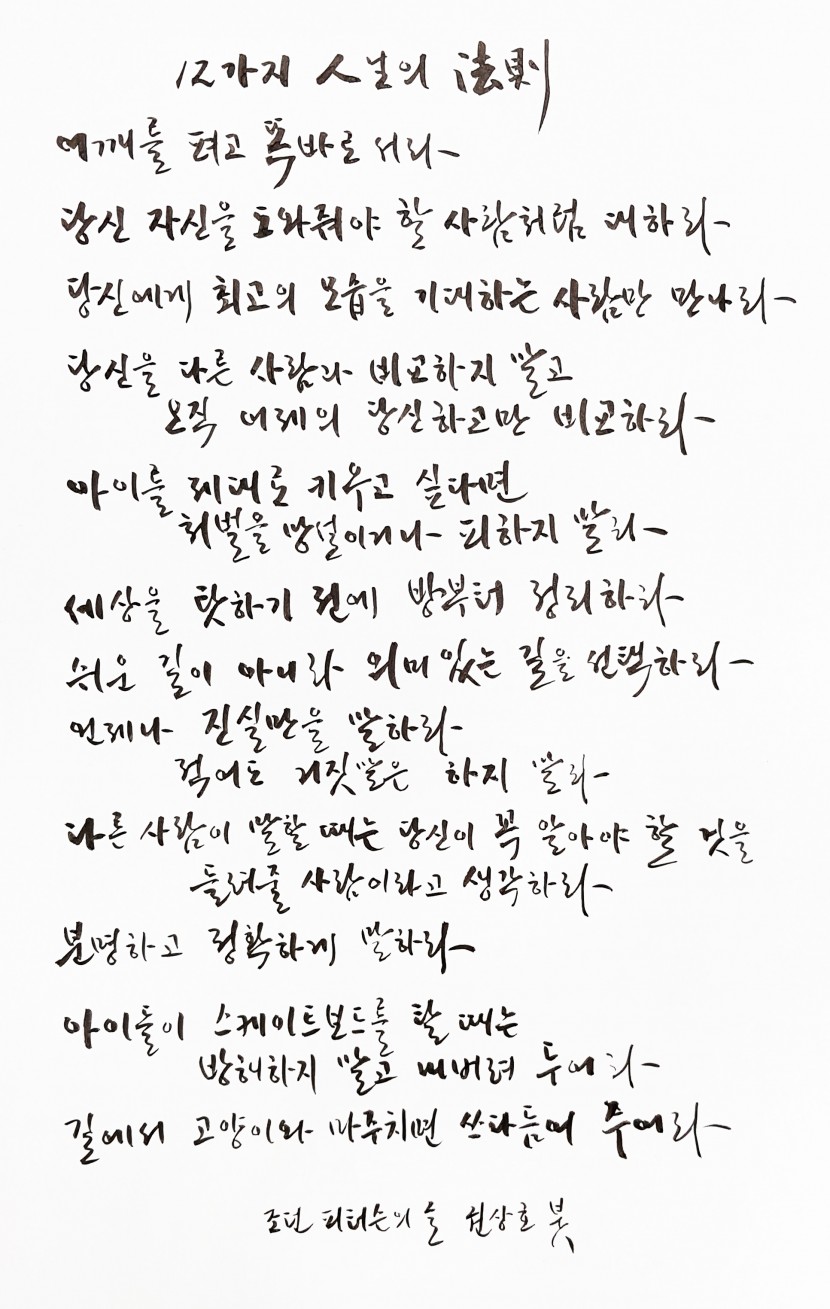 12가지 人생의 法則
어깨를 펴고 똑바로 서라
당신 자신을 도와줘야 할 사람처럼 대하라
당신에게 최고의 모습을 기대하는 사람만 만나라
당신을 다른 사람과 비교하지 말고
오직 어제의 당신하고만 비교하라
아이를 제대로 키우고 싶다면
처벌을 망설이거나 피하지 말라
세상을 탓하기 전에 방부터 정리하라
쉬운 길이 아니라 의미 있는 길을 선택하라
언제나 진실만을 말하라
적어도 거짓말은 하지 말라
다른 사람이 말할 때는 당신이 꼭 알아야 할 것을
들려줄 사람이라고 생각하라
분명하고 정확하게 말하라
아이들이 스케이트보드를 탈 때는
방해하지 말고 내버려 두어라
길에서 고양이와 마주치면 쓰다듬어 주어라
조던 피터슨의 늘 권상호 붓